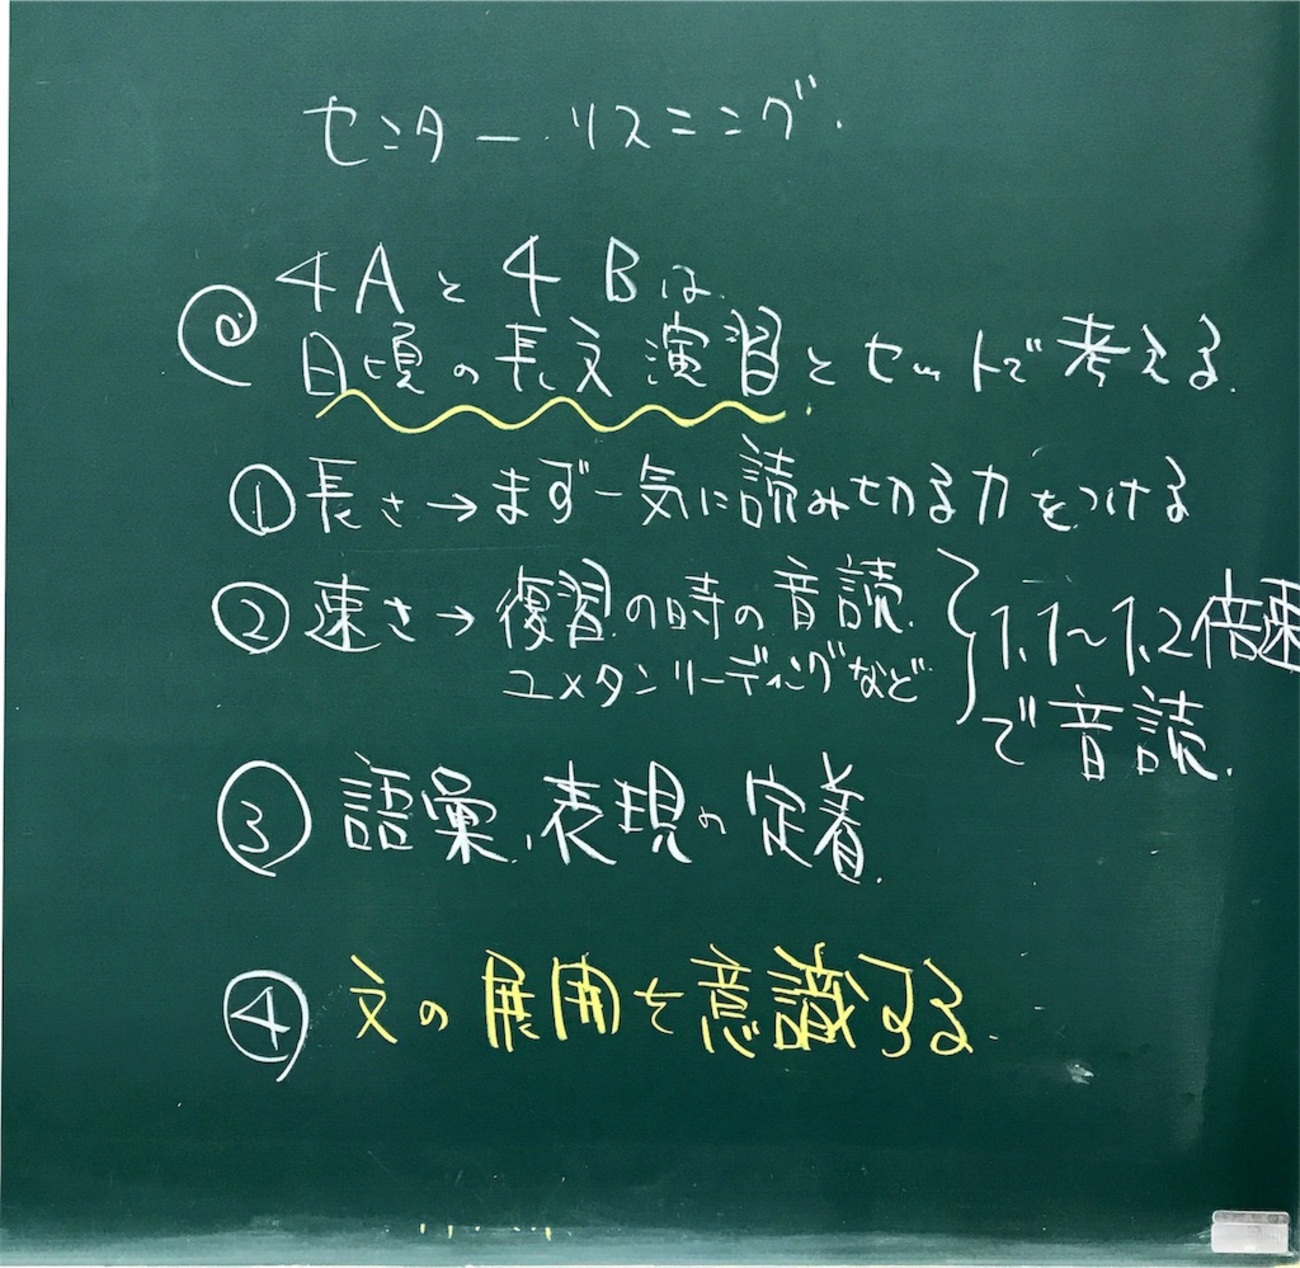 センターリスニング.
@ 4Aと4Bは
日頃の長文演習とセットで考える.
①長さ→まず一気に読み切る力をつける
②速さ→復習の時の音読
ユメタンリーディングなど
} 1.1〜1.2倍速
で音読.
③語彙、表現の定着.
④文の展開を意識する.